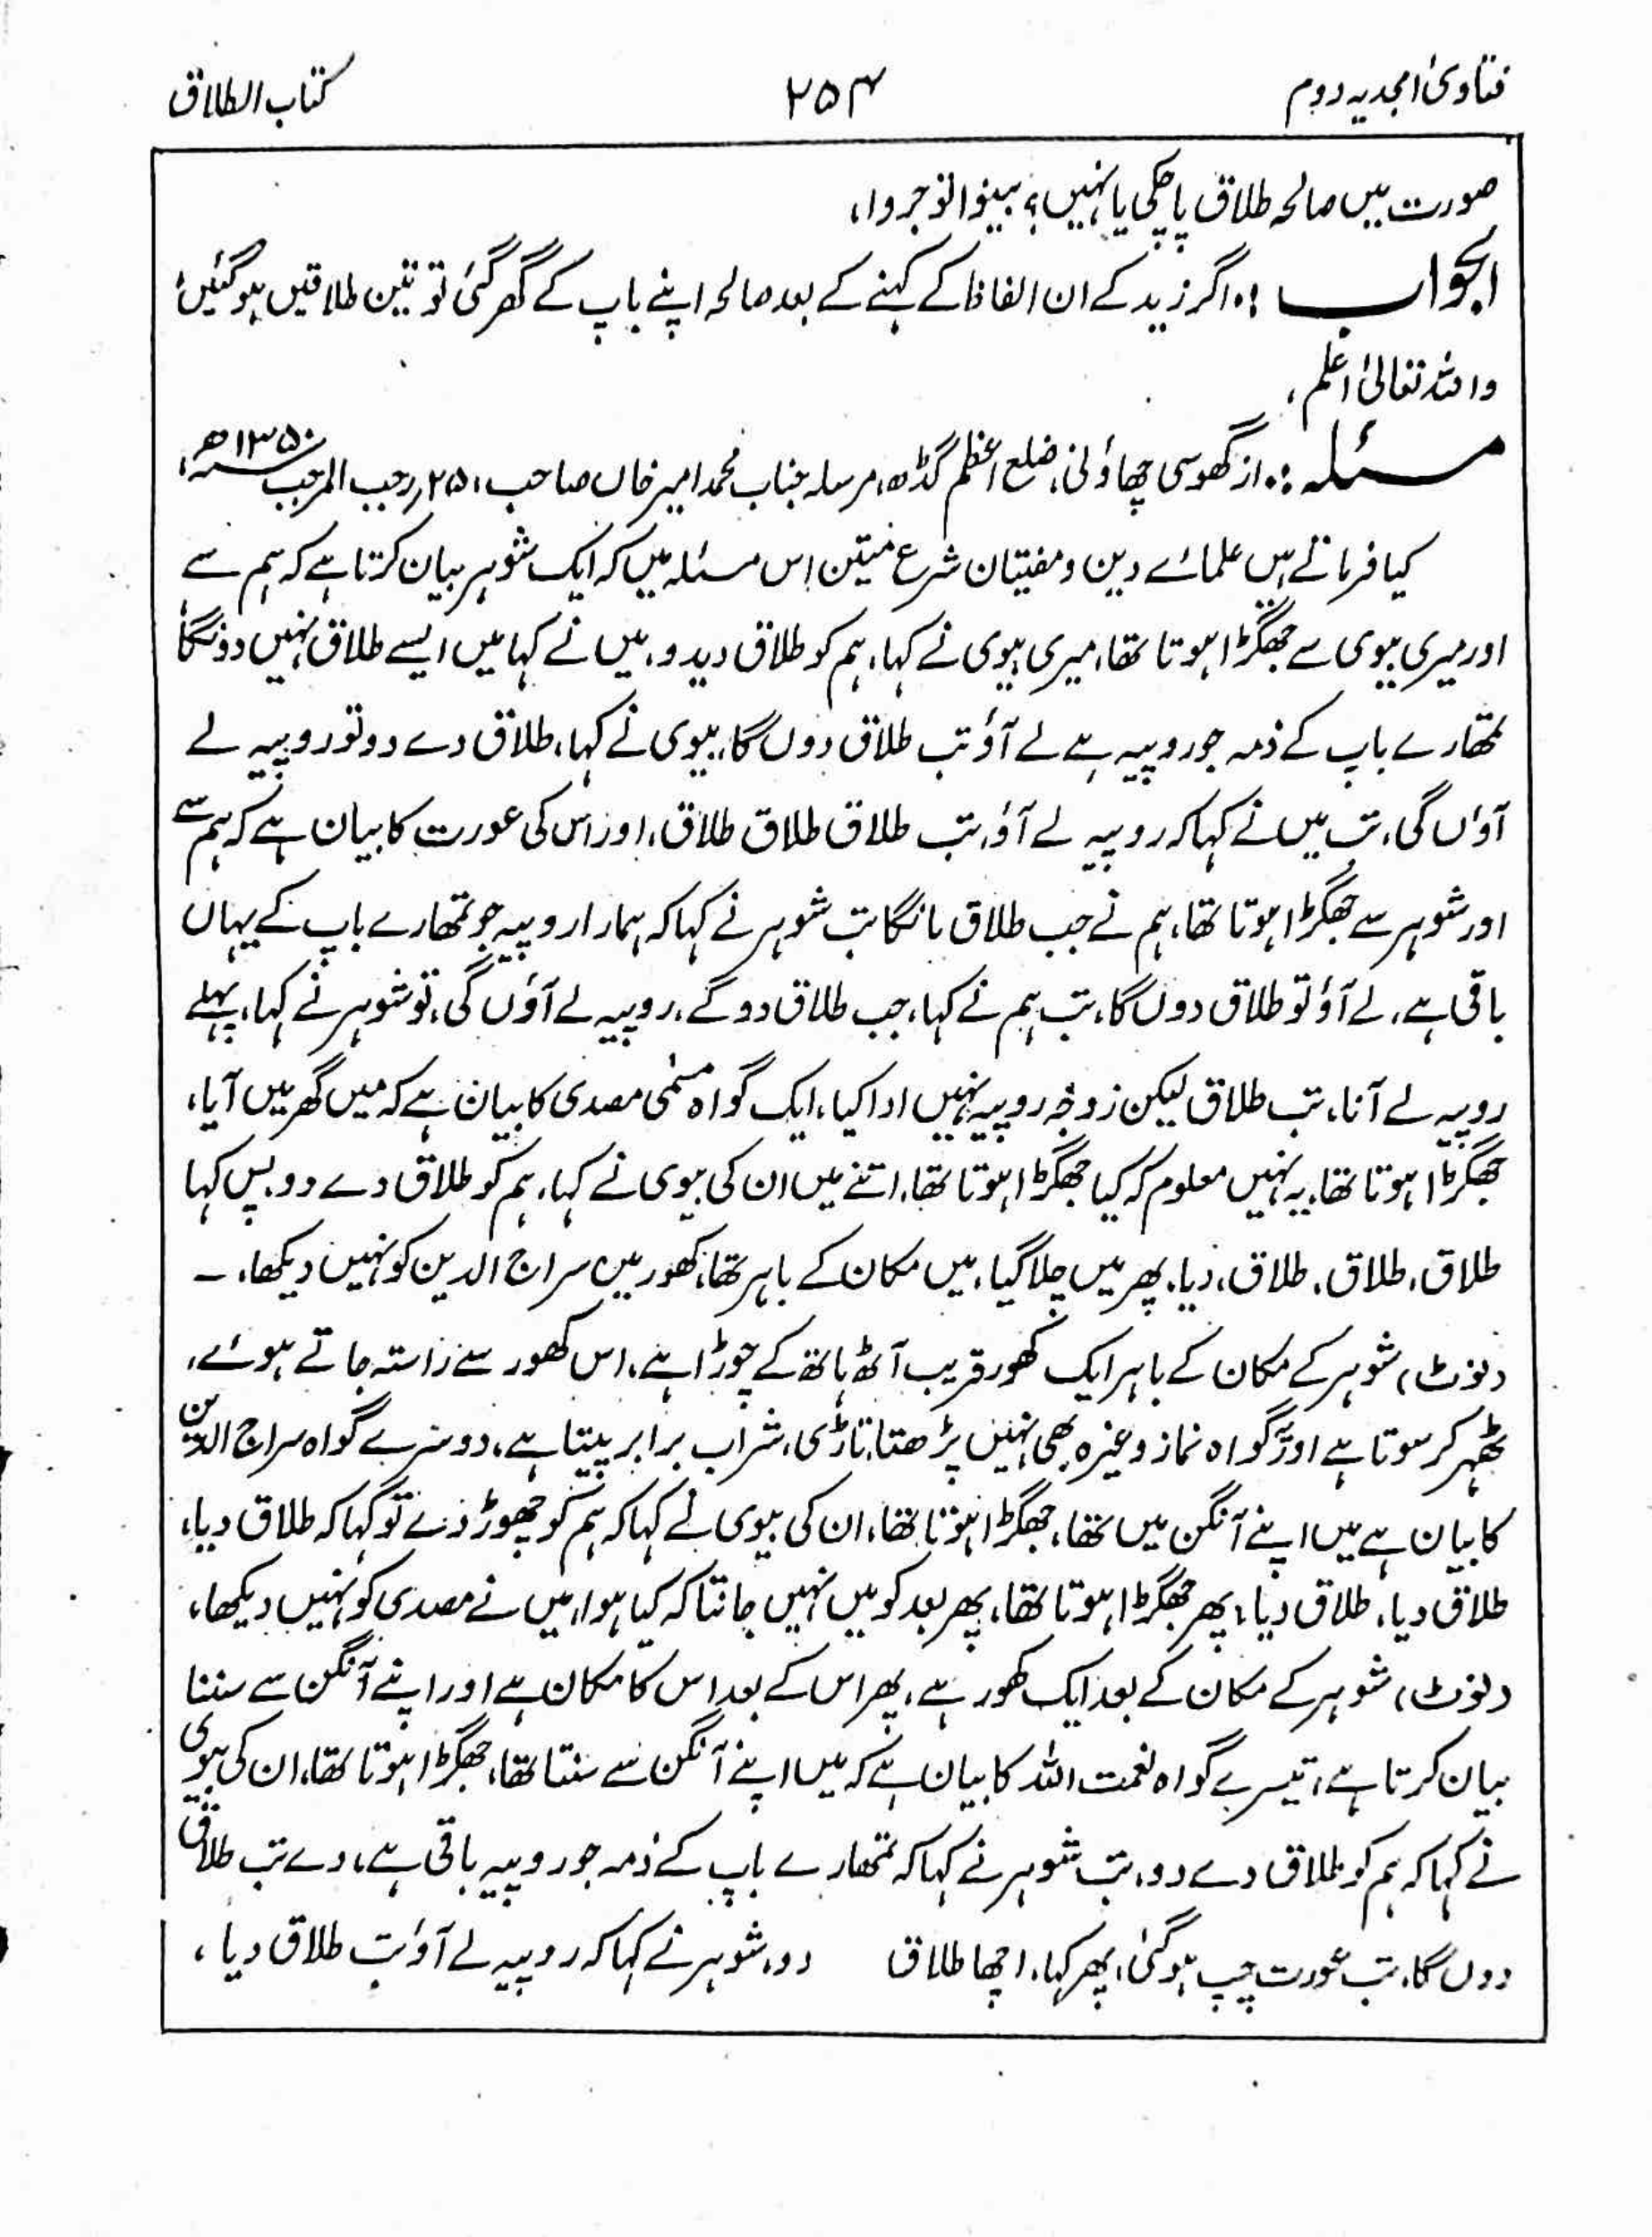 فتاویٰ امجدیہ دوم ۲۵۴ کتاب الطلاق
صورت میں صالحہ طلاق پاچکی یا نہیں؟ بینوا توجروا،
الجواب :۔ اگر زید کے ان الفاظ کے کہنے کے بعد صالحہ اپنے باپ کے گھر گئی تو تین طلاقیں ہوگئیں،
واللہ تعالیٰ اعلم،
مسئلہ :۔ از گھوسی چھاؤنی، ضلع اعظم گڈھ، مرسلہ جناب محمد امیر خاں صاحب، ۲۵؍ رجب المرجب ۱۳۵۰ھ،
کیا فرماتے ہیں علمائے دین و مفتیان شرع متین اس مسئلہ میں کہ ایک شوہر بیان کرتا ہے کہ ہم سے
اور میری بیوی سے جھگڑا ہوتا تھا، میری بیوی نے کہا، ہم کو طلاق دیدو، میں نے کہا میں ایسے طلاق نہیں دونگا
تمھارے باپ کے ذمہ جو روپیہ ہے لے آؤ تب طلاق دوں گا، بیوی نے کہا، طلاق دے دو تو روپیہ لے
آؤں گی، تب میں نے کہا کہ روپیہ لے آؤ، تب طلاق طلاق طلاق، اور اس کی عورت کا بیان ہے کہ ہم سے
اور شوہر سے جھگڑا ہوتا تھا، ہم نے جب طلاق مانگا تب شوہر نے کہا کہ ہمارا روپیہ جو تمھارے باپ کے یہاں
باقی ہے، لے آؤ تو طلاق دوں گا، تب ہم نے کہا، جب طلاق دوگے، روپیہ لے آؤں گی، تو شوہر نے کہا، پہلے
روپیہ لے آنا، تب طلاق لیکن زوجہ روپیہ نہیں ادا کیا، ایک گواہ مسمٰی مصدی کا بیان ہے کہ میں گھر میں آیا،
جھگڑا ہوتا تھا، یہ نہیں معلوم کہ کیا جھگڑا ہوتا تھا، اتنے میں ان کی بیوی نے کہا، ہم کو طلاق دے دو بس کہا
طلاق، طلاق، طلاق، دیا، پھر میں چلا گیا، میں مکان کے باہر تھا، کھور میں سراج الدین کو نہیں دیکھا، ۔
(نوٹ) شوہر کے مکان کے باہر ایک کھور قریب آٹھ ہاتھ کے چوڑا ہے، اس کھور سے راستہ جاتے ہوئے،
ٹھہر کر سوتا ہے اور یہ گواہ نماز وغیرہ بھی نہیں پڑھتا، تاڑی، شراب برابر پیتا ہے، دوسرے گواہ سراج الدین
کا بیان ہے میں اپنے آنگن میں تھا، جھگڑا ہوتا تھا، ان کی بیوی نے کہا کہ ہم کو چھوڑ دے تو کہا کہ طلاق دیا،
طلاق دیا، طلاق دیا، پھر جھگڑا ہوتا تھا، پھر بعد کو میں نہیں جانتا کہ کیا ہوا، میں نے مصدی کو نہیں دیکھا،
(نوٹ) شوہر کے مکان کے بعد ایک کھور ہے، پھر اس کے بعد اس کا مکان ہے اور اپنے آنگن سے سننا
بیان کرتا ہے، تیسرے گواہ نعمت اللہ کا بیان ہے کہ میں اپنے آنگن سے سنتا تھا، جھگڑا ہوتا تھا، ان کی بیوی
نے کہا کہ ہم کو طلاق دے دو، تب شوہر نے کہا کہ تمھارے باپ کے ذمہ جو روپیہ باقی ہے، دے تب طلاق
دوں گا، تب عورت چپ ہوگئی، پھر کہا، اچھا طلاق دو، شوہر نے کہا کہ روپیہ لے آؤ تب طلاق دیا،